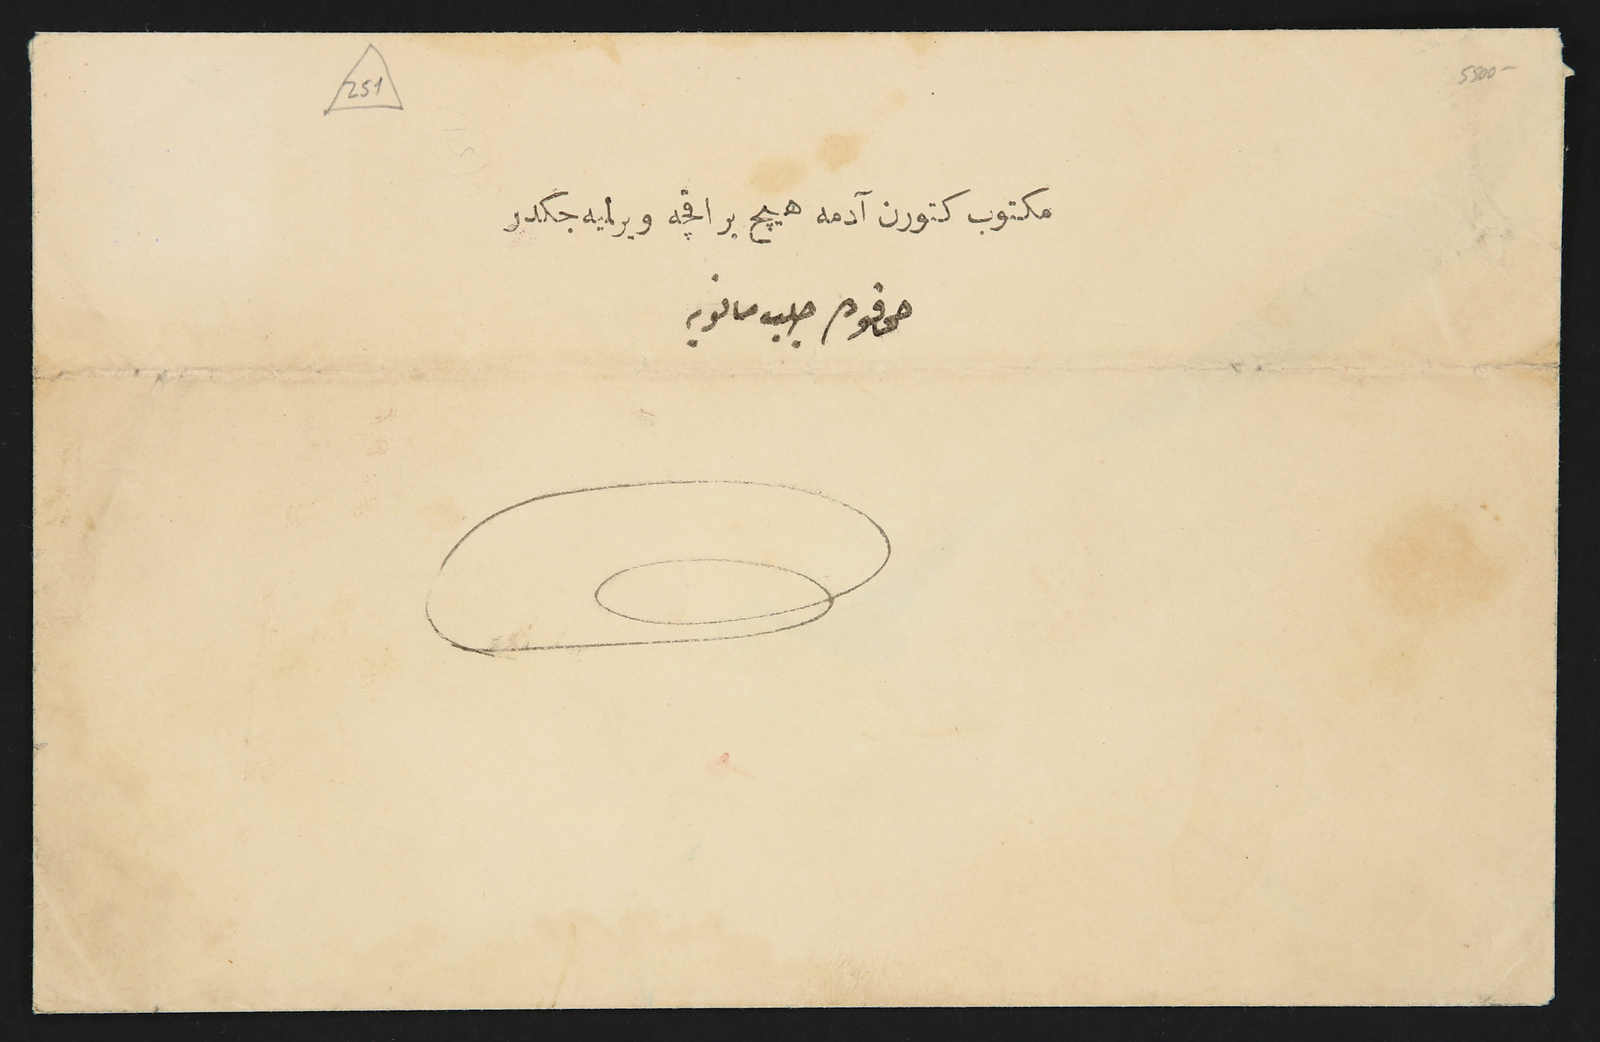 251
5500-
مكتوب كتورن آدمه هیچ بر اقچه ویرلمیه جكدر